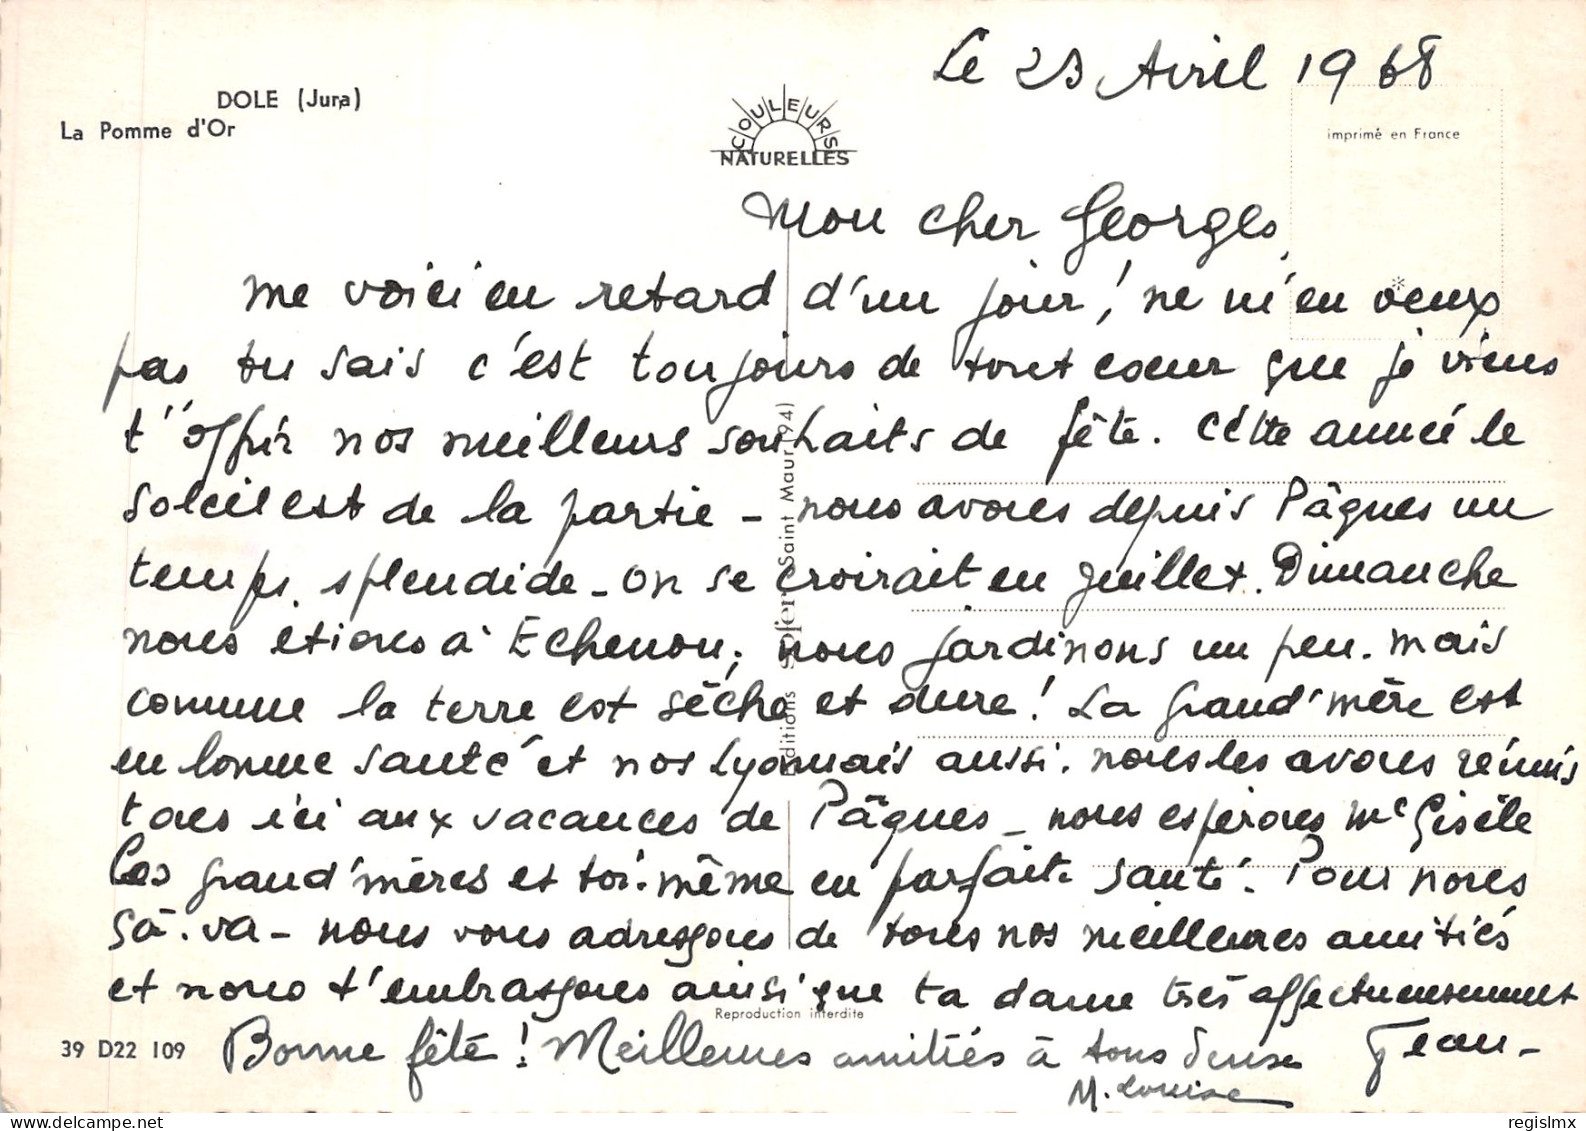 Le 23 Avril 1968
DOLE (Jura)
La Pomme d'Or
COULEURS
NATURELLES
imprimé en France
Mon cher Georges,
me voici en retard d'un jour! ne m'en veux
pas tu sais c'est toujours de tout coeur que je viens
t'offrir nos meilleurs souhaits de fête. Cette année le
soleil est de la partie - nous avons depuis Pâques un
temps splendide - on se croirait en juillet. Dimanche
nous étions à Echenon, nous jardinons un peu. mais
comme la terre est sêche et dure! La grand'mère est
en bonne santé et nos Lyonnais aussi. nous les avons réunis
tous ici aux vacances de Pâques - nous espérons Me Gisèle
les grand'mères et toi-même en parfaite santé. Pour nous
çà-va - nous vous adressons de tous nos meilleures amitiés
et nous t'embrassons ainsi que ta dame très affectueusement
Reproduction interdite
39 D22 109
Bonne fête! Meilleures amitiés à tous deux
Jean -
M. Louise
Editions Sofer Saint Maur (94)
regislmx